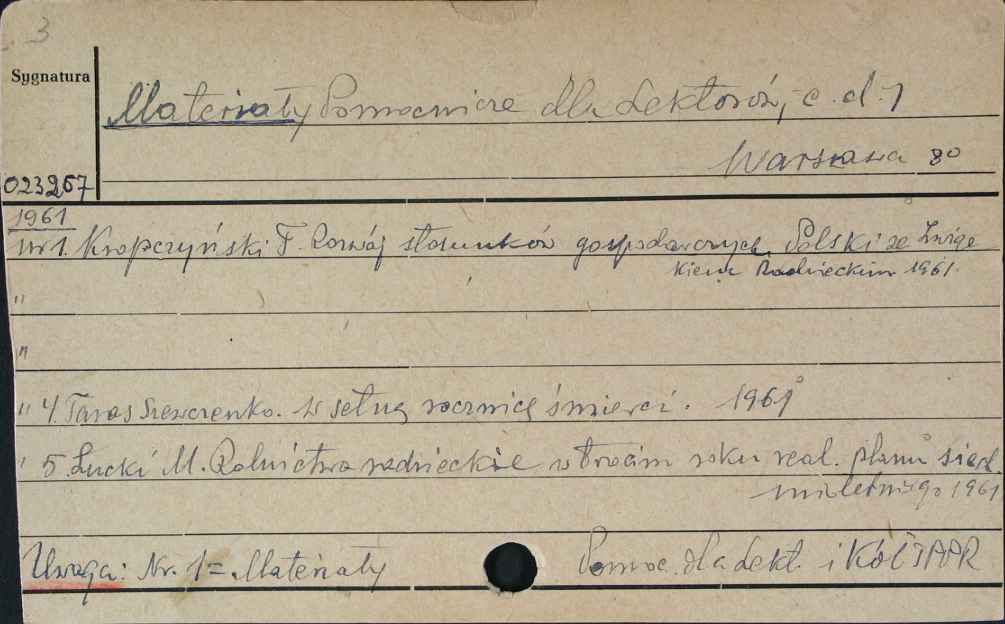 3
Sygnatura
Materiały Pomocnicze dla Lektorów, c.d. 1
Warszawa 80
023267
1961
nr 1. Kropczyński F. Rozwój stosunków gospodarczych Polski ze Związ
kiem Radzieckim 1961.
"
"
" 4. Taras Szewczenko. W setną rocznicę śmierci. 1961
" 5. Łucki M. Rolnictwo radzieckie w trzecim roku real. planu siedm
mioletniego 1961
Uwaga: Nr. 1 = Materiały Pomoc. dla Lekt. i Kół TPPR